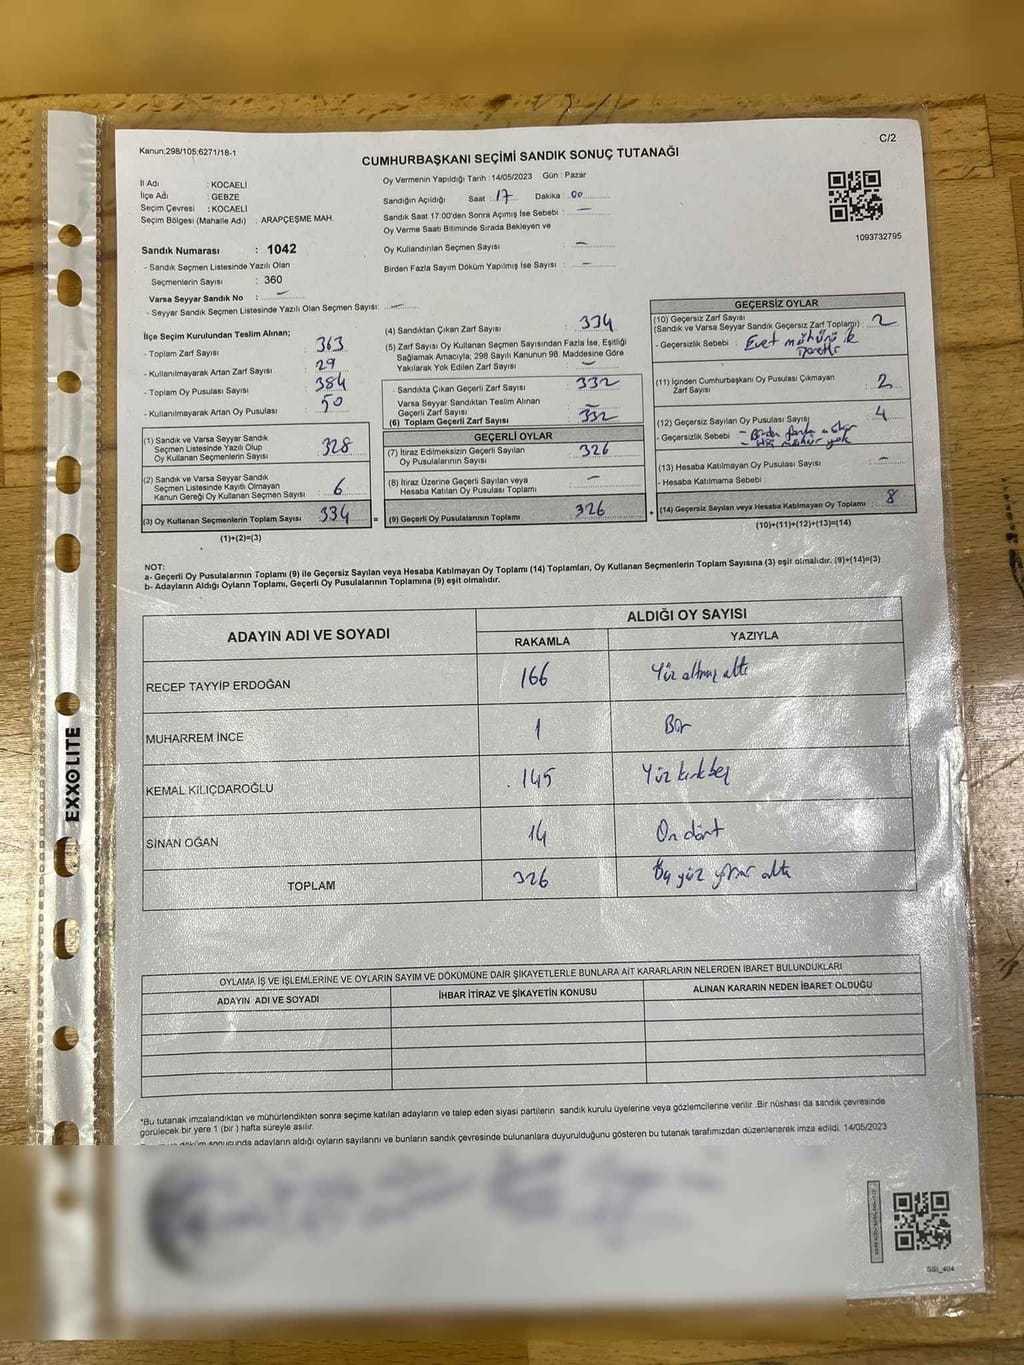 C/2
Kanun:298/105,6271/18-1
CUMHURBAŞKANI SEÇİMİ SANDIK SONUÇ TUTANAĞI
İl Adı : KOCAELİ
İlçe Adı : GEBZE
Seçim Çevresi : KOCAELİ
Seçim Bölgesi (Mahalle Adı) : ARAPÇEŞME MAH.
Sandık Numarası : 1042
- Sandık Seçmen Listesinde Yazılı Olan
Seçmenlerin Sayısı : 360
Varsa Seyyar Sandık No : —
- Seyyar Sandık Seçmen Listesinde Yazılı Olan Seçmen Sayısı: —
Oy Vermenin Yapıldığı Tarih : 14/05/2023 Gün : Pazar
Sandığın Açıldığı Saat : 17 Dakika : 00
Sandık Saat 17:00'den Sonra Açımış İse Sebebi : —
Oy Verme Saati Bitiminde Sırada Bekleyen ve
Oy Kullandırılan Seçmen Sayısı : —
Birden Fazla Sayım Döküm Yapılmış İse Sayısı : —
1093732795
İlçe Seçim Kurulundan Teslim Alınan;
- Toplam Zarf Sayısı : 363
- Kullanılmayarak Artan Zarf Sayısı : 29
- Toplam Oy Pusulası Sayısı : 384
- Kullanılmayarak Artan Oy Pusulası : 50
(1) Sandık ve Varsa Seyyar Sandık
Seçmen Listesinde Yazılı Olup
Oy Kullanan Seçmenlerin Sayısı : 328
(2) Sandık ve Varsa Seyyar Sandık
Seçmen Listesinde Kayıtlı Olmayan
Kanun Gereği Oy Kullanan Seçmen Sayısı : 6
(3) Oy Kullanan Seçmenlerin Toplam Sayısı : 334 =
(1)+(2)=(3)
(4) Sandıktan Çıkan Zarf Sayısı : 334
(5) Zarf Sayısı Oy Kullanan Seçmen Sayısından Fazla İse, Eşitliği
Sağlamak Amacıyla, 298 Sayılı Kanunun 98. Maddesine Göre
Yakılarak Yok Edilen Zarf Sayısı : —
- Sandıkta Çıkan Geçerli Zarf Sayısı : 332
Varsa Seyyar Sandıktan Teslim Alınan
Geçerli Zarf Sayısı : —
(6) Toplam Geçerli Zarf Sayısı : 332
GEÇERLİ OYLAR
(7) İtiraz Edilmeksizin Geçerli Sayılan
Oy Pusulalarının Sayısı : 326
(8) İtiraz Üzerine Geçerli Sayılan veya
Hesaba Katılan Oy Pusulası Toplamı : —
(9) Geçerli Oy Pusulalarının Toplamı : 326 +
GEÇERSİZ OYLAR
(10) Geçersiz Zarf Sayısı
(Sandık ve Varsa Seyyar Sandık Geçersiz Zarf Toplamı) : 2
- Geçersizlik Sebebi : Evet mühürü ile
işaretli
(11) İçinden Cumhurbaşkanı Oy Pusulası Çıkmayan
Zarf Sayısı : 2
(12) Geçersiz Sayılan Oy Pusulası Sayısı : 4
- Geçersizlik Sebebi : - Birden fazla
- mühür yok
(13) Hesaba Katılmayan Oy Pusulası Sayısı : —
- Hesaba Katılmama Sebebi :
(14) Geçersiz Sayılan veya Hesaba Katılmayan Oy Toplamı : 8
(10)+(11)+(12)+(13)=(14)
NOT:
a- Geçerli Oy Pusulalarının Toplamı (9) ile Geçersiz Sayılan veya Hesaba Katılmayan Oy Toplamı (14) Toplamları, Oy Kullanan Seçmenlerin Toplam Sayısına (3) eşit olmalıdır. (9)+(14)=(3)
b- Adayların Aldığı Oyların Toplamı, Geçerli Oy Pusulalarının Toplamına (9) eşit olmalıdır.
ADAYIN ADI VE SOYADI
ALDIĞI OY SAYISI
RAKAMLA YAZIYLA
RECEP TAYYİP ERDOĞAN 166 Yüz altmış altı
MUHARREM İNCE 1 Bir
KEMAL KILIÇDAROĞLU 145 Yüz kırk beş
SİNAN OĞAN 14 On dört
TOPLAM 326 Üç yüz yirmi altı
OYLAMA İŞ VE İŞLEMLERİNE VE OYLARIN SAYIM VE DÖKÜMÜNE DAİR ŞİKAYETLERLE BUNLARA AİT KARARLARIN NELERDEN İBARET BULUNDUKLARI
ADAYIN ADI VE SOYADI İHBAR İTİRAZ VE ŞİKAYETİN KONUSU ALINAN KARARIN NEDEN İBARET OLDUĞU
*Bu tutanak imzalandıktan ve mühürlendikten sonra seçime katılan adayların ve talep eden siyasi partilerin sandık kurulu üyelerine veya gözlemcilerine verilir .Bir nüshası da sandık çevresinde
görülecek bir yere 1 (bir ) hafta süreyle asılır.
döküm sonucunda adayların aldığı oyların sayılarını ve bunların sandık çevresinde bulunanlara duyurulduğunu gösteren bu tutanak tarafımızdan düzenlenerek imza edildi. 14/05/2023
SSİ_404
EXXOLITE